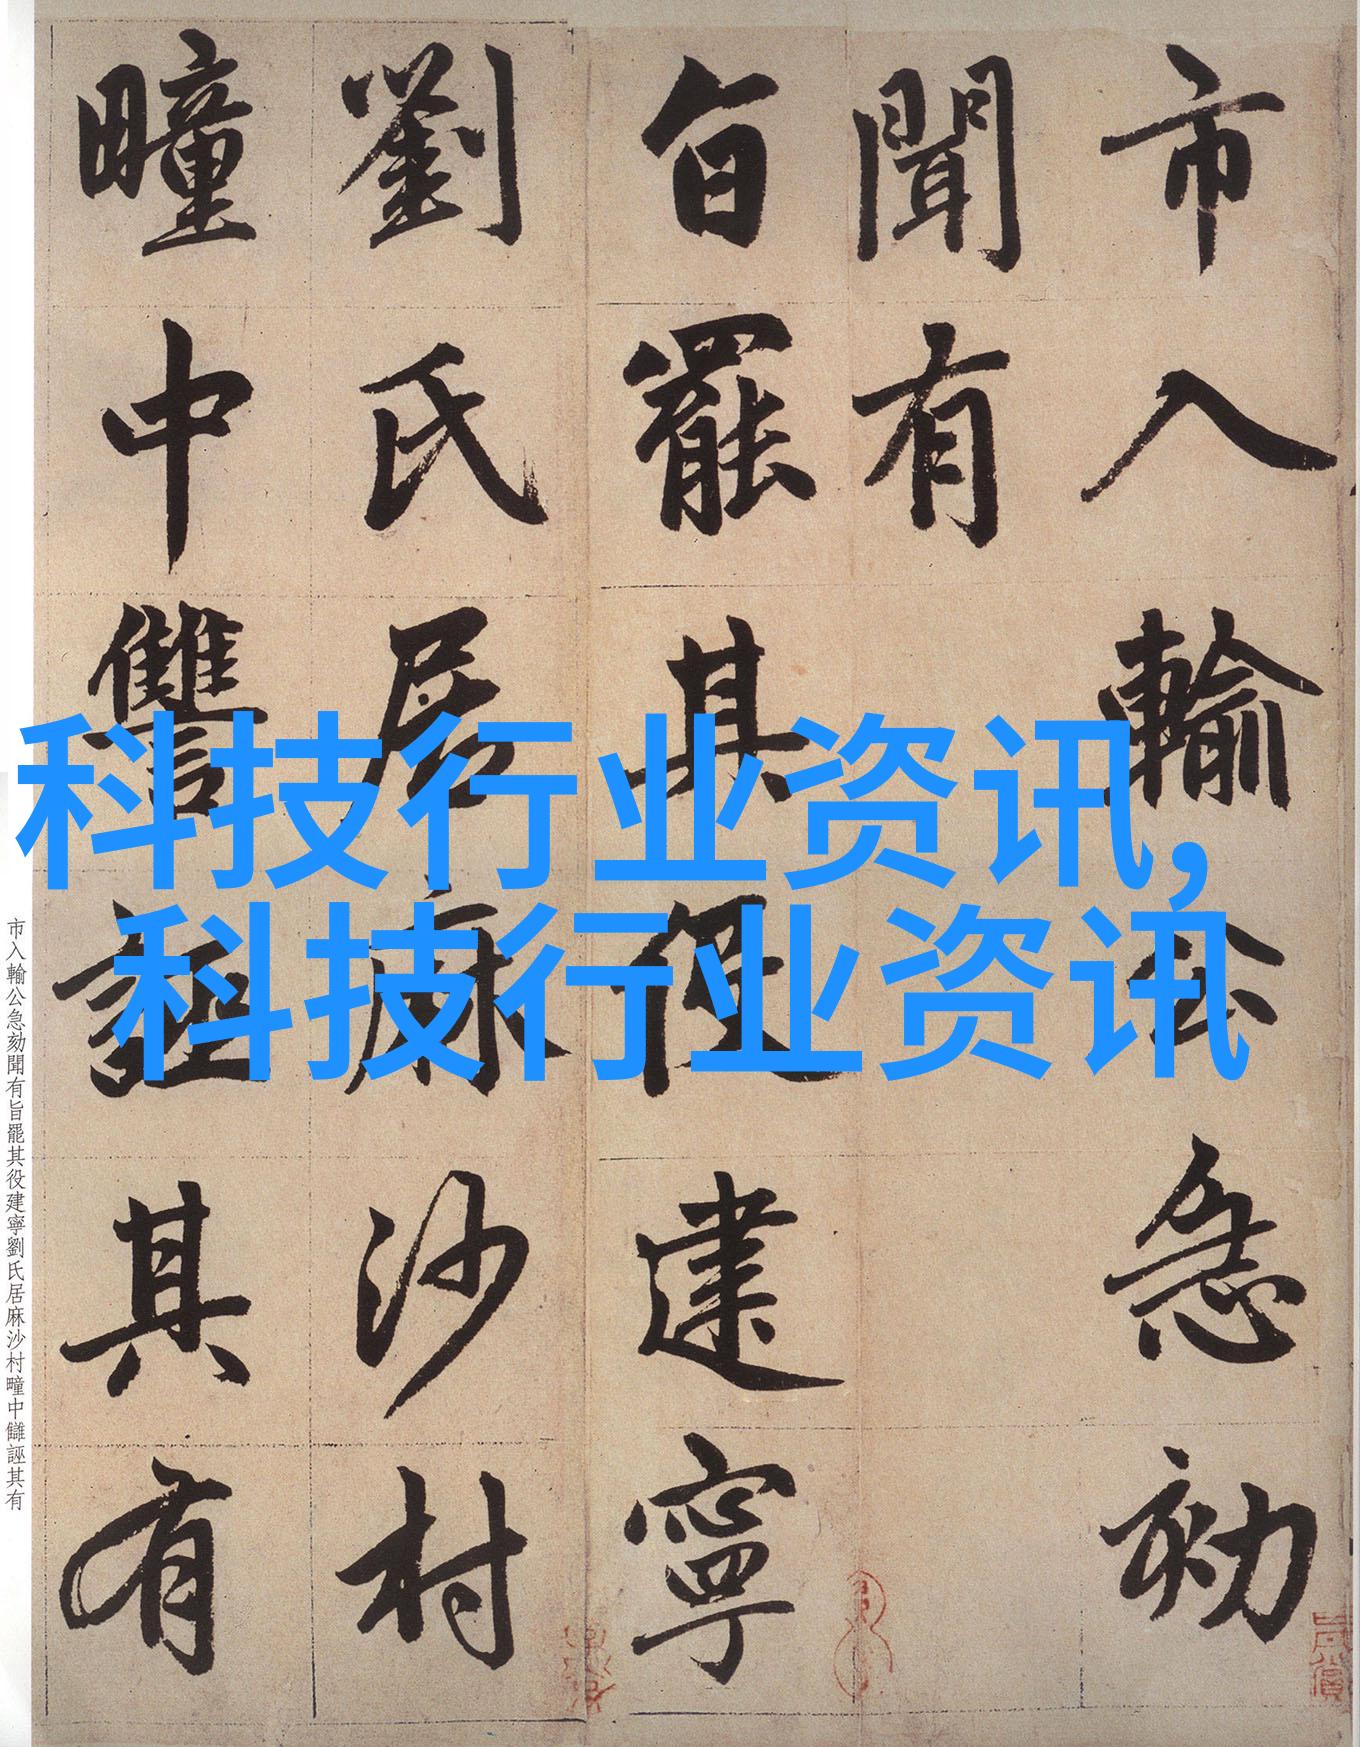 市入輸公急劾
聞有
旨罷其役建寧
劉氏居麻沙村
疃中讐誣其有
科技行业资讯,
科技行业资讯
市入輸公急劾聞有旨罷其役建寧劉氏居麻沙村疃中讎誣其有